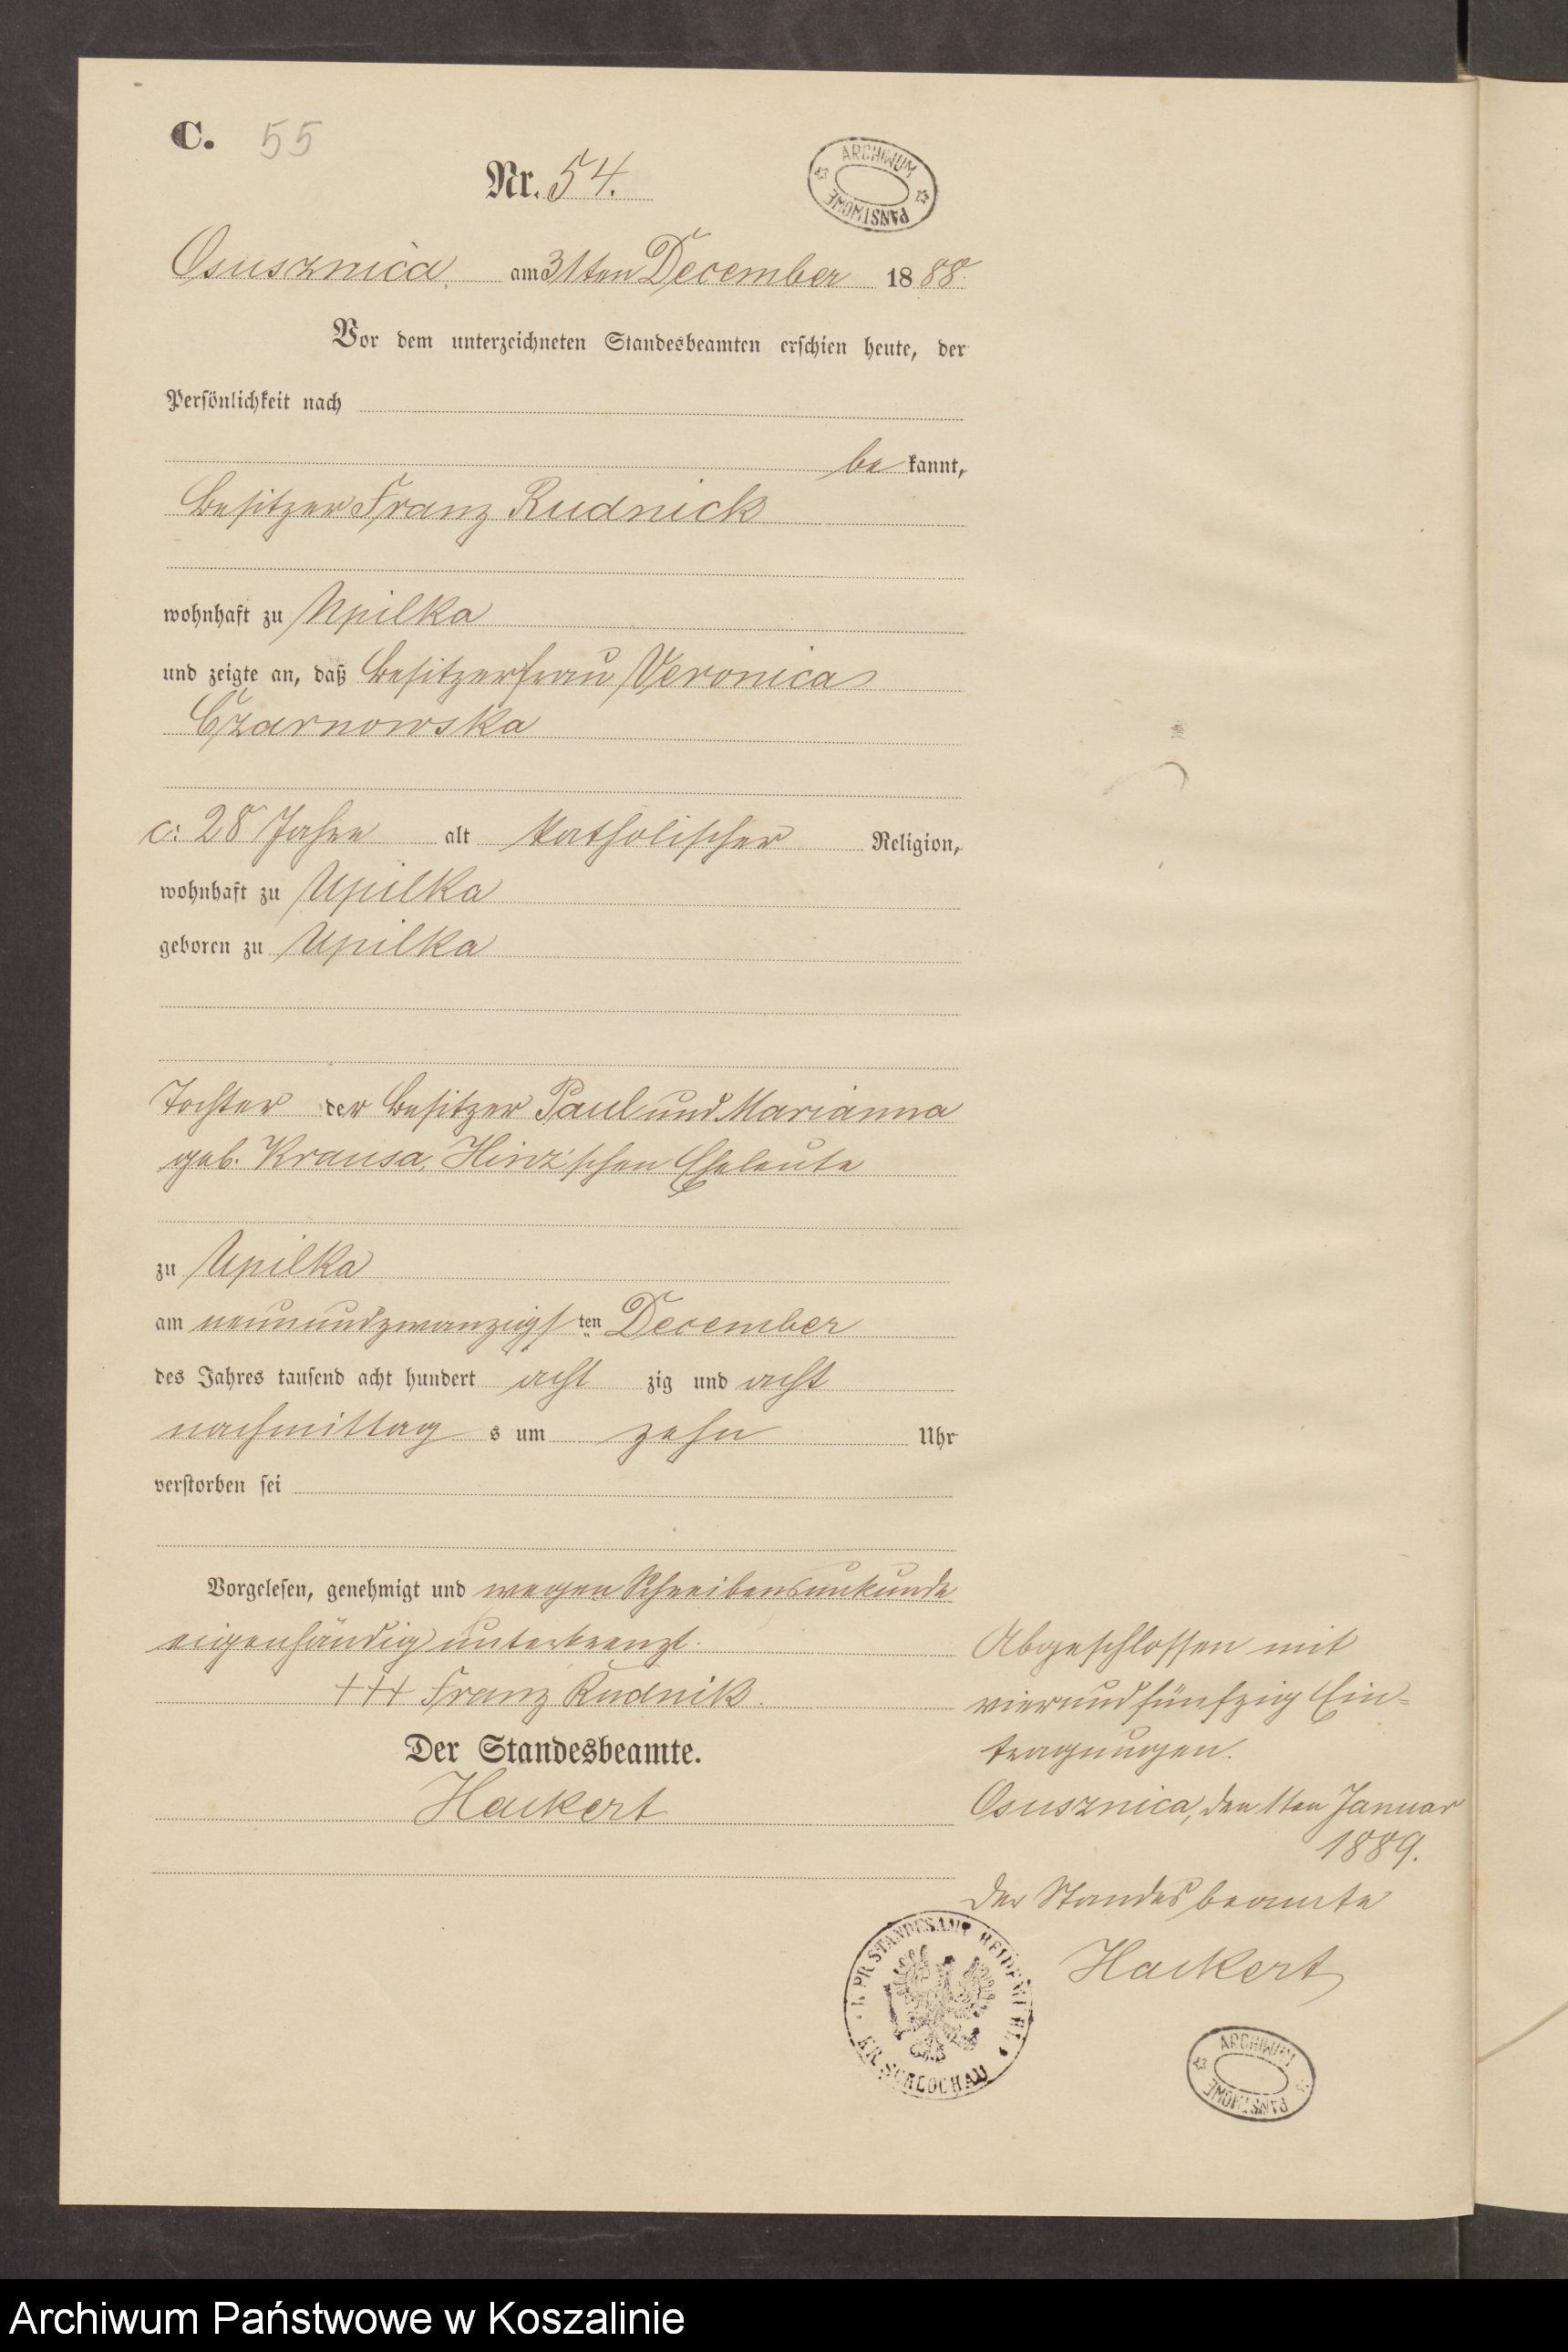 C. 55
Nr. 54.
ARCHIWUM PAŃSTWOWE
Osusznica, am 31ten December 1888.
Vor dem unterzeichneten Standesbeamten erschien heute, der
Persönlichkeit nach
be kannt,
Besitzer Franz Rudnick
wohnhaft zu Upilka
und zeigte an, daß Besitzerfrau Veronica
Czarnowska
c: 28 Jahre alt katholischer Religion,
wohnhaft zu Upilka
geboren zu Upilka
Tochter der Besitzer Paul und Marianna
geb. Krausa, Hinz'schen Eheleute
zu Upilka
am neunundzwanzigsten December
des Jahres tausend acht hundert acht zig und acht
nachmittag s um zehn Uhr
verstorben sei
Vorgelesen, genehmigt und wegen Schreibensunkunde
eigenhändig unterkreuzt.
+++ Franz Rudnik.
Der Standesbeamte.
Hackert
Abgeschlossen mit
vierundfünfzig Ein-
tragungen.
Osusznica, den 1ten Januar
1889.
Der Standesbeamte
Hackert
PR. STANDESAMT
KR. SCHLOCHAU
ARCHIWUM PAŃSTWOWE
Archiwum Państwowe w Koszalinie